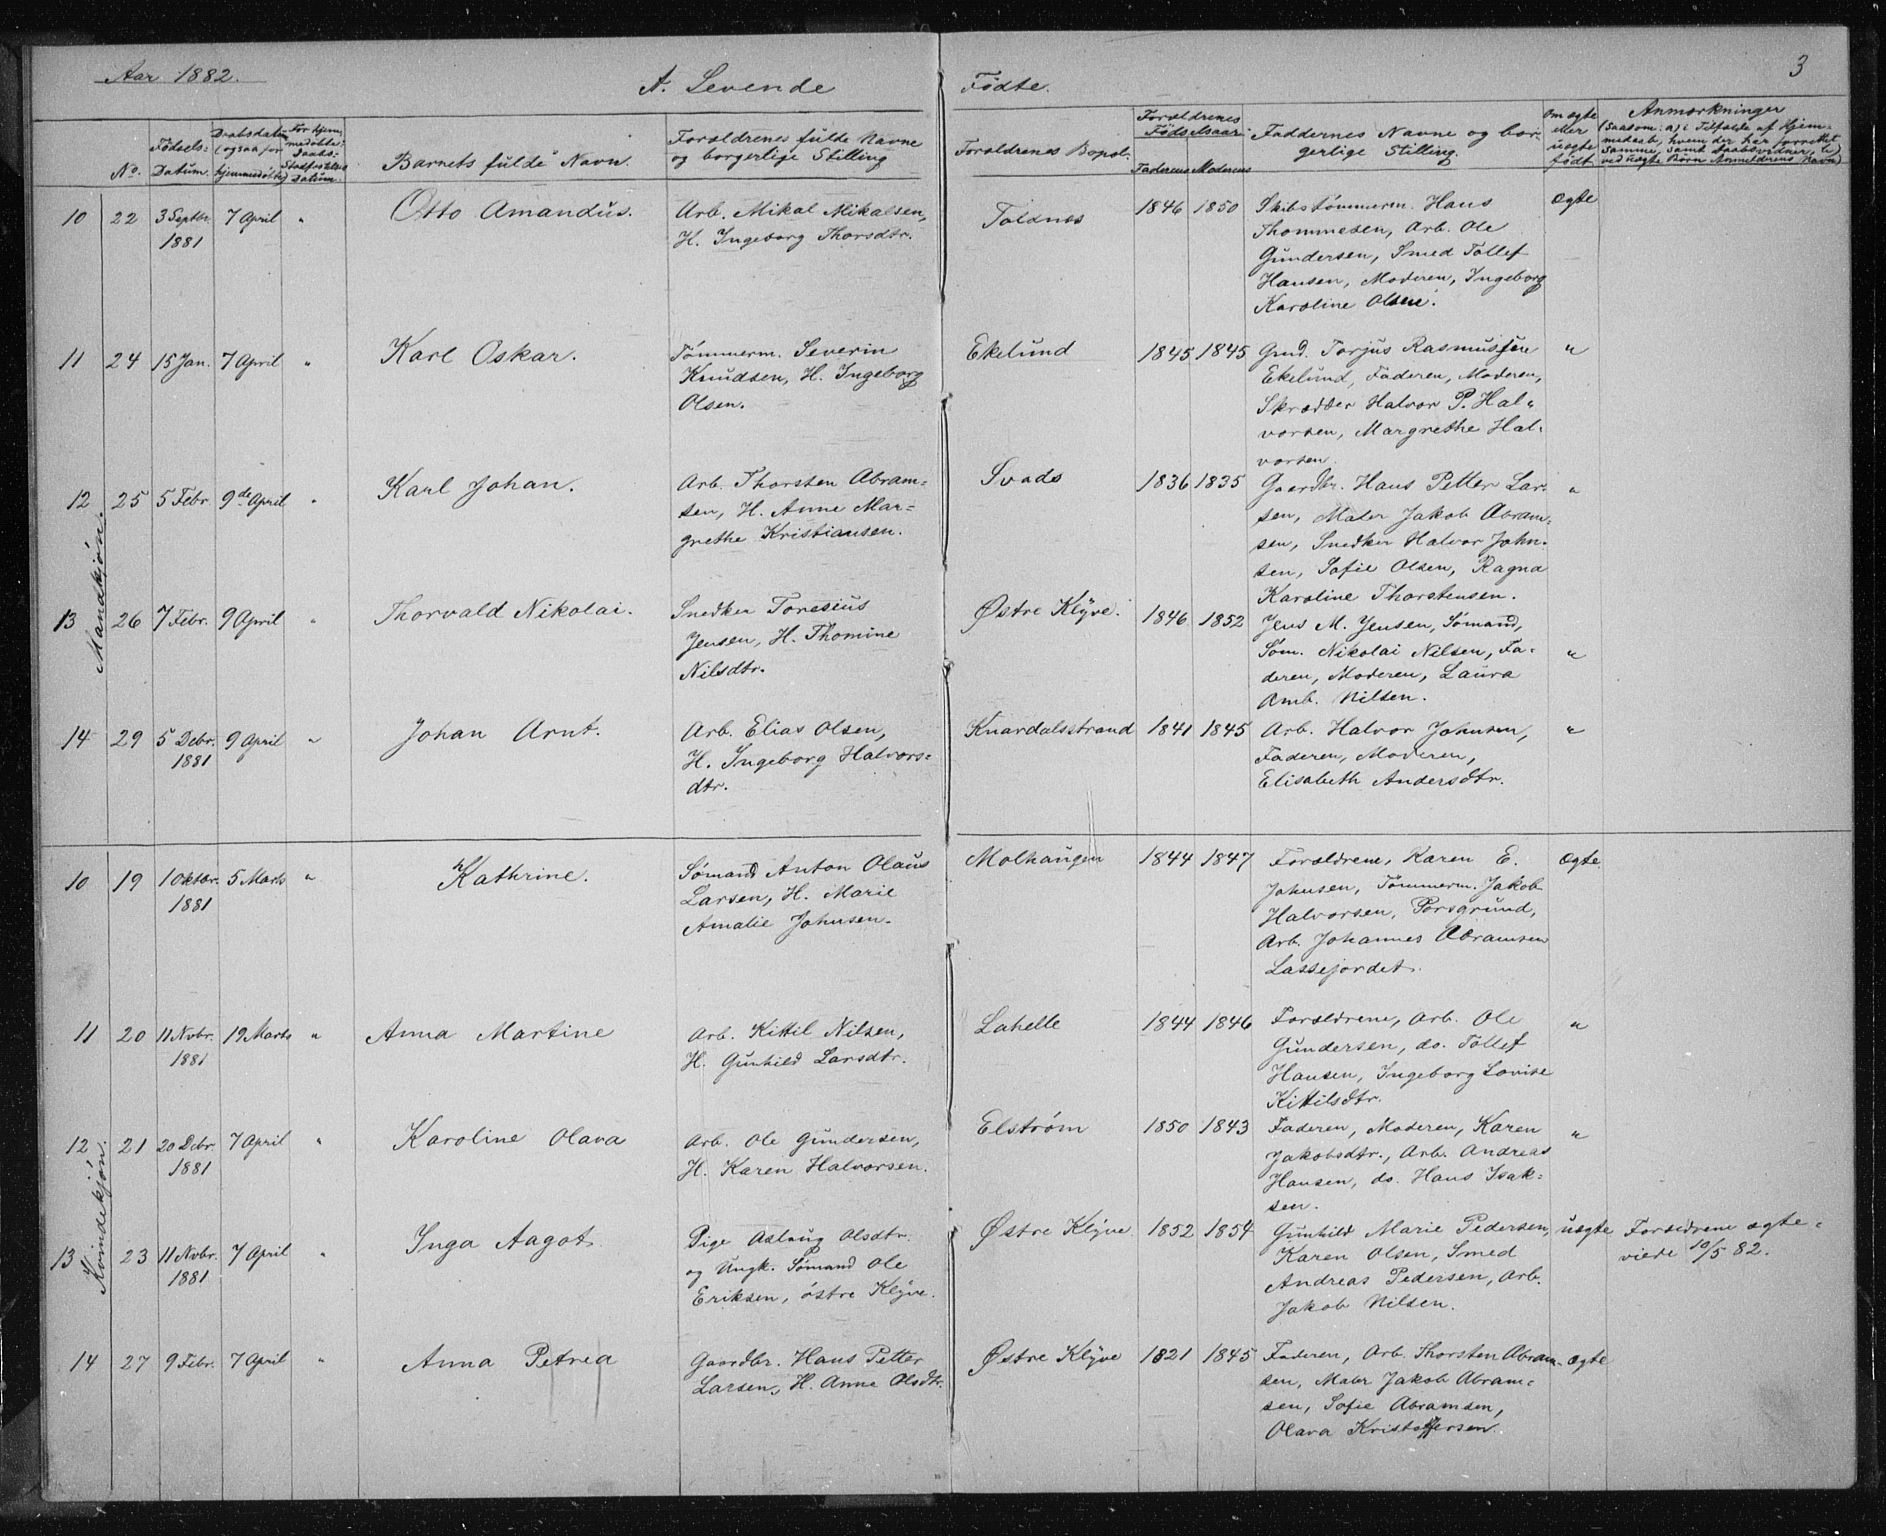 Aar 1882.
A. Levende Fødte.
3
No.
Fødsels-Datum.
Daabsdatum (ogsaa for hjemmedøbte)
For hjemmedøbte: Daabs-Stadfæstelses Datum.
Barnets fulde Navn.
Forældrenes fulde Navne og borgerlige Stilling
Forældrenes Bopæl.
Forældrenes Fødselsaar
Faderens Moderens
Faddernes Navne og borgerlige Stilling.
Om ægte eller uægte født
Anmærkninger
(Saasom: a) i Tilfælde af Hjemmedaab, hvem der har forrettet samme, samt Daabsvidner, b) ved uægte Børn Anmelderens Navn)
Mandkjøn.
10 22 3 Septbr. 7 April " Otto Amandus. Arb. Mikal Mikalsen, Toldnes 1846 1850 Skibstømmerm. Hans Ægte
1881 H. Ingeborg Thorsdtr. Thommesen, Arb. Ole
Gundersen, Smed Tollef
Hansen, Moderen, Ingeborg
Karoline Olsen.
11 24 15 Jan. 7 April " Karl Oskar. Tømmerm. Severin Ekelund 1845 1845 Grd. Torjus Rasmussen "
Knudsen, H. Ingeborg Ekelund, Faderen, Moderen,
Olsen. Skrædder Halvor P. Hal-
vorsen, Margrethe Hal-
vorsen.
12 25 5 Febr. 9de April " Karl Johan. Arb. Thorsten Abram- Svads 1836 1835 Gaardbr. Hans Petter Lar- "
sen, H. Anne Mar- sen, Maler Jakob Abram-
grethe Kristiansen. sen, Snedker Halvor John-
sen, Sofie Olsen, Ragna
Karoline Thorstensen.
13 26 7 Febr. 9 April " Thorvald Nikolai. Snedker Toresius Østre Klyve. 1846 1852 Jens M. Jensen, Sømand,
Jensen, H. Thomine Søm. Nikolai Nilsen, Fa- "
Nilsdtr. deren, Moderen, Laura
Amb. Nilsen.
14 29 5 Debr. 9 April " Johan Arnt. Arb. Elias Olsen, Knardalsstrand 1841 1845 Arb. Halvor Johnsen, "
1881 H. Ingeborg Halvors- Faderen, Moderen,
dtr. Elisabeth Andersdtr.
Kvindekjøn.
10 19 1 Oktbr. 5 Marts " Kathrine. Sømand Anton Olaus Molhaugen 1844 1847 Forældrene, Karen E. Ægte
1881 Larsen, H. Marie Johnsen, Tømmerm. Jakob
Amalie Johnsen. Halvorsen, Porsgrund,
Arb. Johannes Abramsen
Lassejordet.
11 20 11 Novbr. 19 Marts " Anna Martine Arb. Kittil Nilsen, Lahelle 1844 1846 Forældrene, Arb. Ole "
1881 H. Gunhild Larsdtr. Gundersen, do. Tollef
Hansen, Ingeborg Lovise
Kittilsdtr.
12 21 20 Debr. 7 April " Karoline Olava Arb. Ole Gundersen, Elstrøm 1850 1843 Faderen, Moderen, Karen "
1881 H. Karen Halvorsen. Jakobsdtr., Arb. Andreas
Hansen, do. Hans Isak-
sen.
13 23 11 Novbr. 7 April " Inga Aagot Pige Aslaug Olsdtr. Østre Klyve 1852 1854 Gunhild Marie Pedersen, uægte Forældrene ægte-
1881 og Ungk. Sømand Ole Karen Olsen, Smed viede 10/5 82.
Eriksen, østre Klyve. Andreas Pedersen, Arb.
Jakob Nilsen.
14 27 9 Febr. 7 April " Anna Petrea Gaardbr. Hans Petter Østre Klyve 1821 1845 Faderen, Arb. Thorsten Abram- ægte
Larsen, H. Anne Olsdtr. sen, Maler Jakob Abram-
sen, Sofie Abramsen,
Olava Kristoffersen.